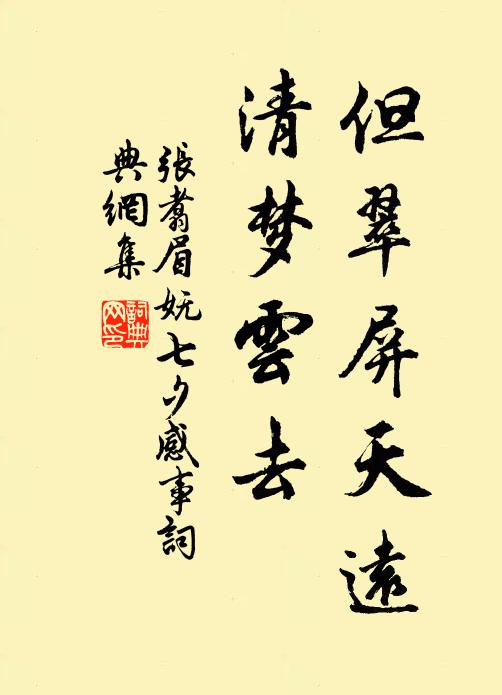 但翠屏天遠
清梦雲去
張翥眉妩七夕感事詞
典網集
詞典
网印